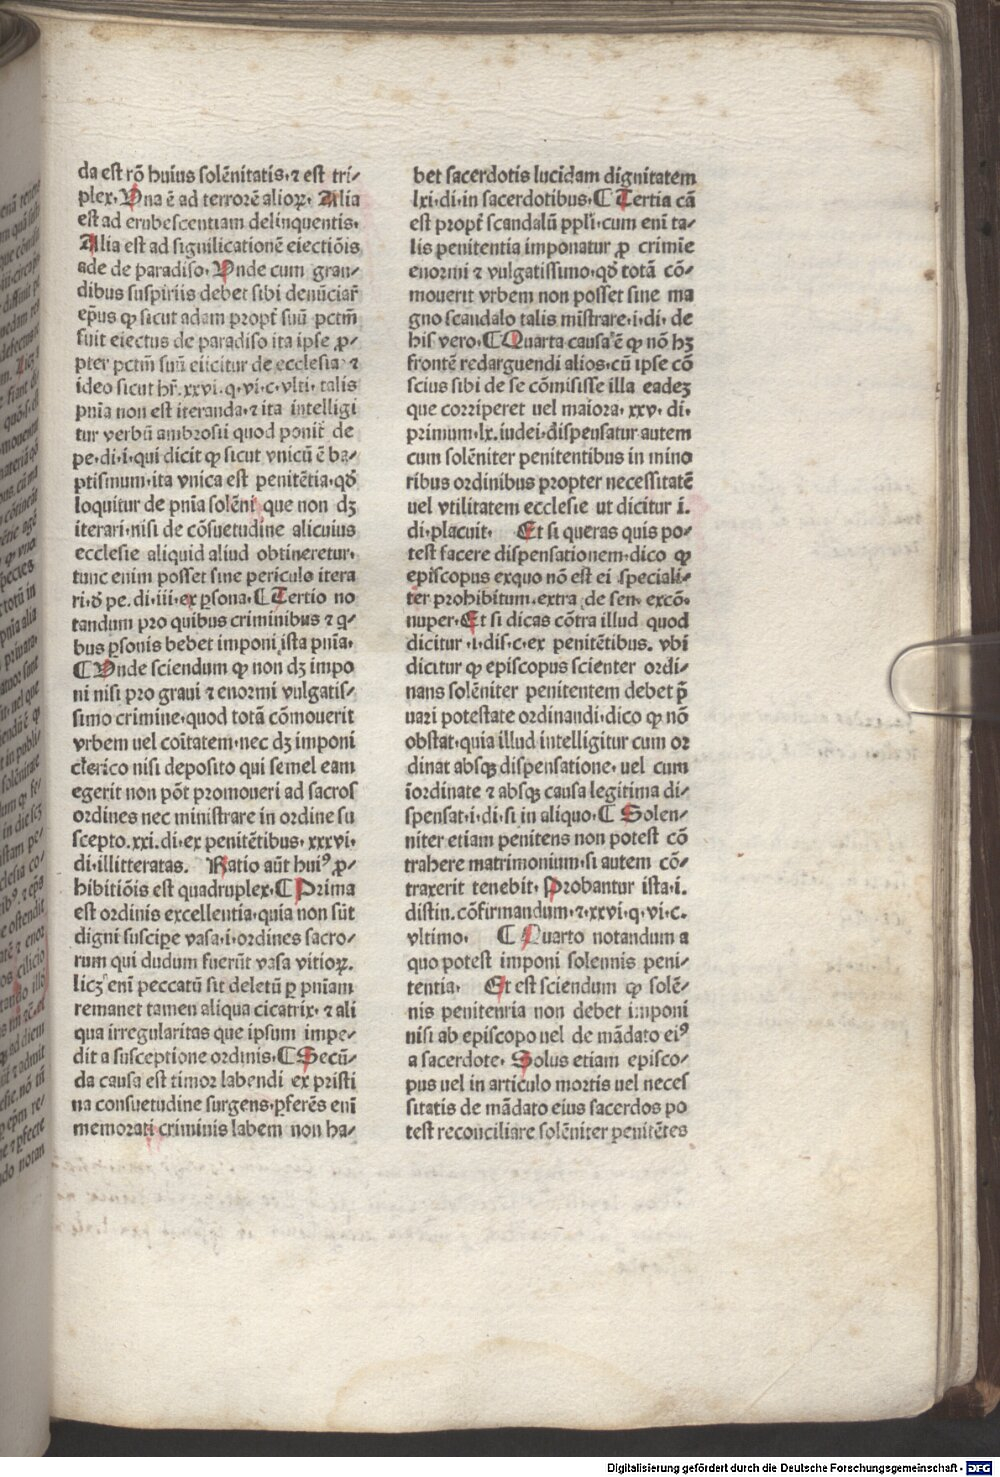 da est rō huius solēnitatis· ⁊ est tri⸗
plex· Vna ē ad terrorē alioꝝ· Alia
est ad erubescentiam delinquentis·
Alia est ad significationē eiectiōis
ade de paradiso· Vnde cum gran⸗
dibus suspiriis debet sibi denūciar̄
ep̄us ꝙ sicut adam propt̄ suū pctm̄
fuit eiectus de paradiso ita ipse ꝓ⸗
pter pctm̄ suū eiicitur de ecclesia ⁊
ideo sicut hr̄· xxvi· q· vi· c· vlti· talis
pn̄ia non est iteranda· ⁊ ita intelligi
tur verbū ambrosii quod ponit̄ de
pe· di· i· qui dicit ꝙ sicut vnicū ē ba⸗
ptismum· ita vnica est penitētia· qd̄
loquitur de pn̄ia solēni que non dꝫ
iterari· nisi de cōsuetudine alicuius
ecclesie aliquid aliud obtineretur·
tunc enim posset sine periculo itera
ri· d̄ pe· di· iii· ex ꝑsona· ¶ Tertio no
tandum pro quibus criminibus ⁊ q̄⸗
bus ꝑsonis bebet imponi ista pn̄ia·
¶ Vnde sciendum ꝙ non dꝫ impo
ni nisi pro graui ⁊ enormi vulgatis⸗
simo crimine· quod totā cōmouerit
vrbem uel coītatem· nec dꝫ imponi
clerico nisi deposito qui semel eam
egerit non pōt promoueri ad sacros
ordines nec ministrare in ordine su
scepto· xxi· di· ex penitētibus· xxxvi·
di· illitteratas. Ratio aūt huiꝰ ꝓ⸗
hibitiōis est quadruplex· ¶ Prima
est ordinis excellentia· quia non sūt
digni suscipe vasa· i· ordines sacro⸗
rum qui dudum fuerūt vasa vitioꝝ.
licꝫ eni̅ peccatū sit deletū ꝑ pn̄iam
remanet tamen aliqua cicatrix· ⁊ ali
qua irregularitas que ipsum impe⸗
dit a susceptione ordinis· ¶ Secū⸗
da causa est timor labendi ex pristi
na consuetudine surgens· ꝑferēs eni̅
memorati criminis labem non ha⸗
bet sacerdotis lucidam dignitatem
lxi· di· in sacerdotibus· ¶ Tertia cā
est propt̄ scandalū ppl̄i· cum eni̅ ta⸗
lis penitentia imponatur ꝓ crimīe
enormi ⁊ vulgatissimo· qd̄ totā cō⸗
mouerit vrbem non posset sine ma
gno scandalo talis mīstrare· i· di· de
his vero· ¶ Quarta causa ē ꝙ nō hꝫ
frontē redarguendi alios· cū ipse cō
scius sibi de se cōmisisse illa eadeꝫ
que corriperet uel maiora· xxv· di·
primum· lx. iudei· dispensatur autem
cum solēniter penitentibus in mino
ribus ordinibus propter necessitatē
uel vtilitatem ecclesie ut dicitur i.
di· placuit· Et si queras quis po⸗
test facere dispensationem· dico ꝙ
episcopus exquo nō est ei speciali⸗
ter prohibitum· extra de sen· excō·
nuper· Et si dicas cōtra illud quod
dicitur ·i· dis· c· ex penitētibus. vbi
dicitur ꝙ episcopus scienter ordi⸗
nans solēniter penitentem debet p̄
uari potestate ordinandi· dico ꝙ nō
obstat· quia illud intelligitur cum or
dinat absqꝫ dispensatione· uel cum
īordinate ⁊ absqꝫ causa legitima di⸗
spensat· i· di· si in aliquo· ¶ Solen⸗
niter etiam penitens non potest cō
trahere matrimonium· si autem cō⸗
traxerit tenebit· Probantur ista· i.
distin. cōfirmandum· ⁊· xxvi· q· vi· c.
vltimo· ¶ Quarto notandum a
quo potest imponi solennis peni⸗
tentia· Et est sciendum ꝙ solē⸗
nis penitenria non debet imponi
nisi ab episcopo uel de mādato eiꝰ
a sacerdote· Solus etiam episco⸗
pus uel in articulo mortis uel neces
sitatis de mādato eius sacerdos po
test reconciliare solēniter penitētes
Digitalisierung gefördert durch die Deutsche Forschungsgemeinschaft - DFG